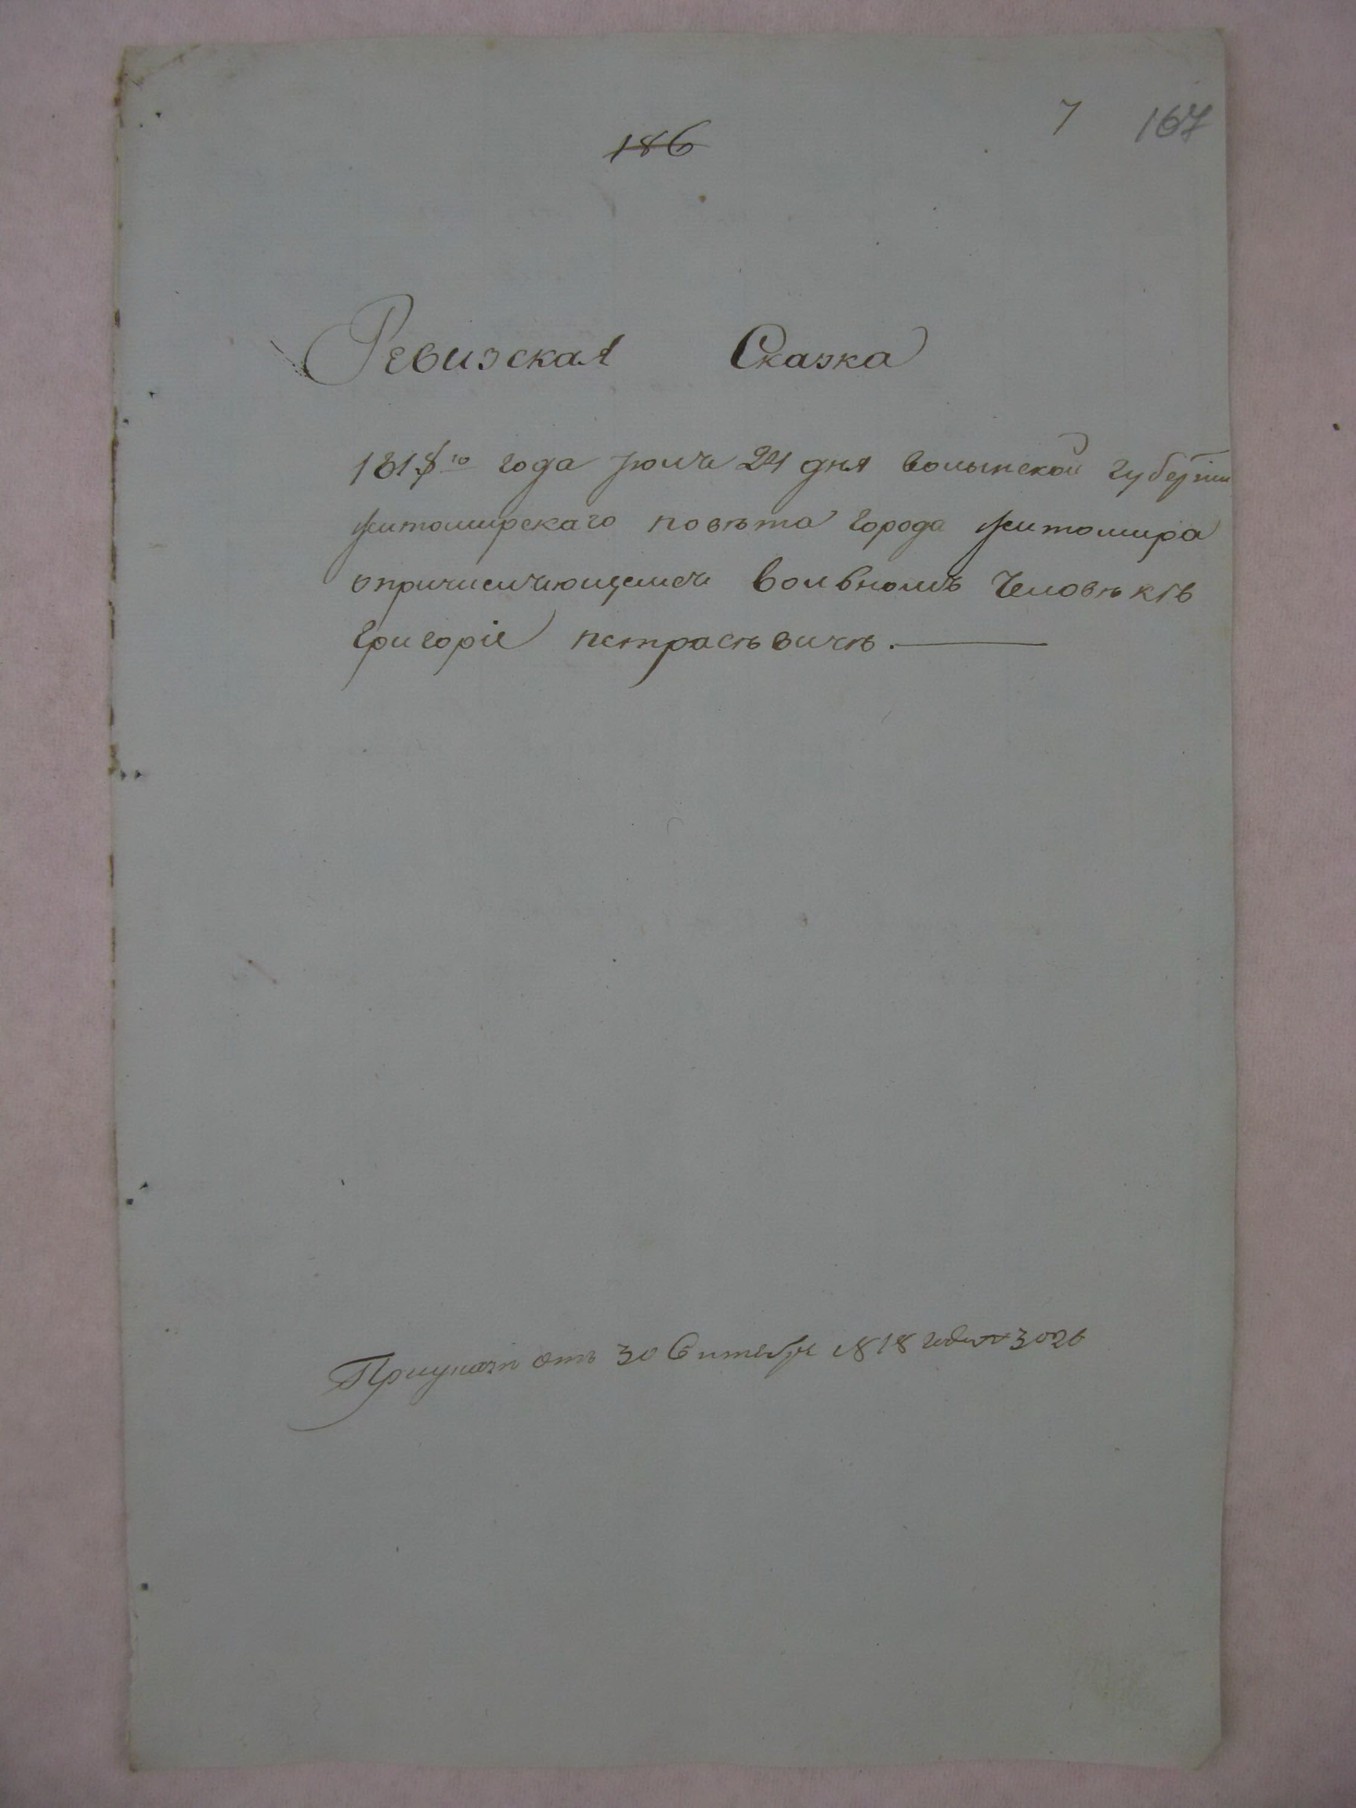 7 167
186
Ревизская Сказка
1818го года июля 24 дня волынской губерніи
житомирскаго повѣта города житомира
опричисляющемся вольномъ человѣкѣ
григоріе петрасѣвичѣ.
Приуказѣ отъ 30 Сентября 1818 года № 3026